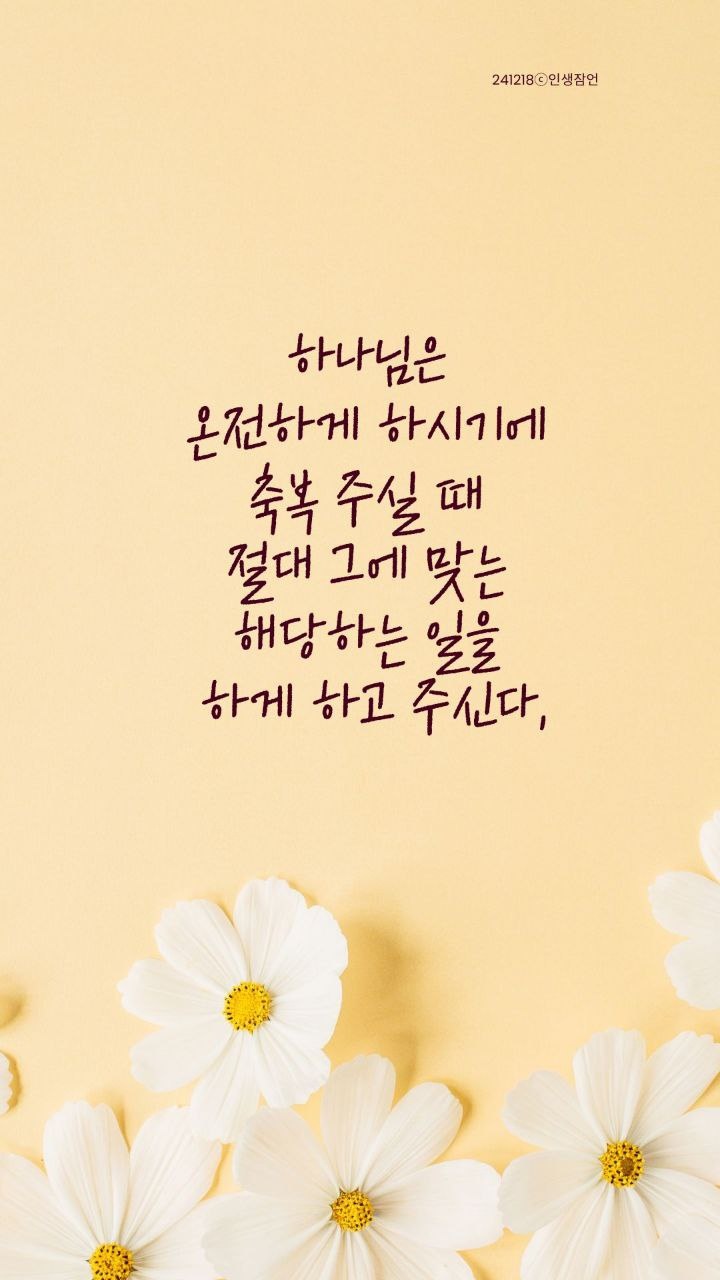 241218ⓒ인생잠언
하나님은
온전하게 하시기에
축복 주실 때
절대 그에 맞는
해당하는 일을
하게 하고 주신다,